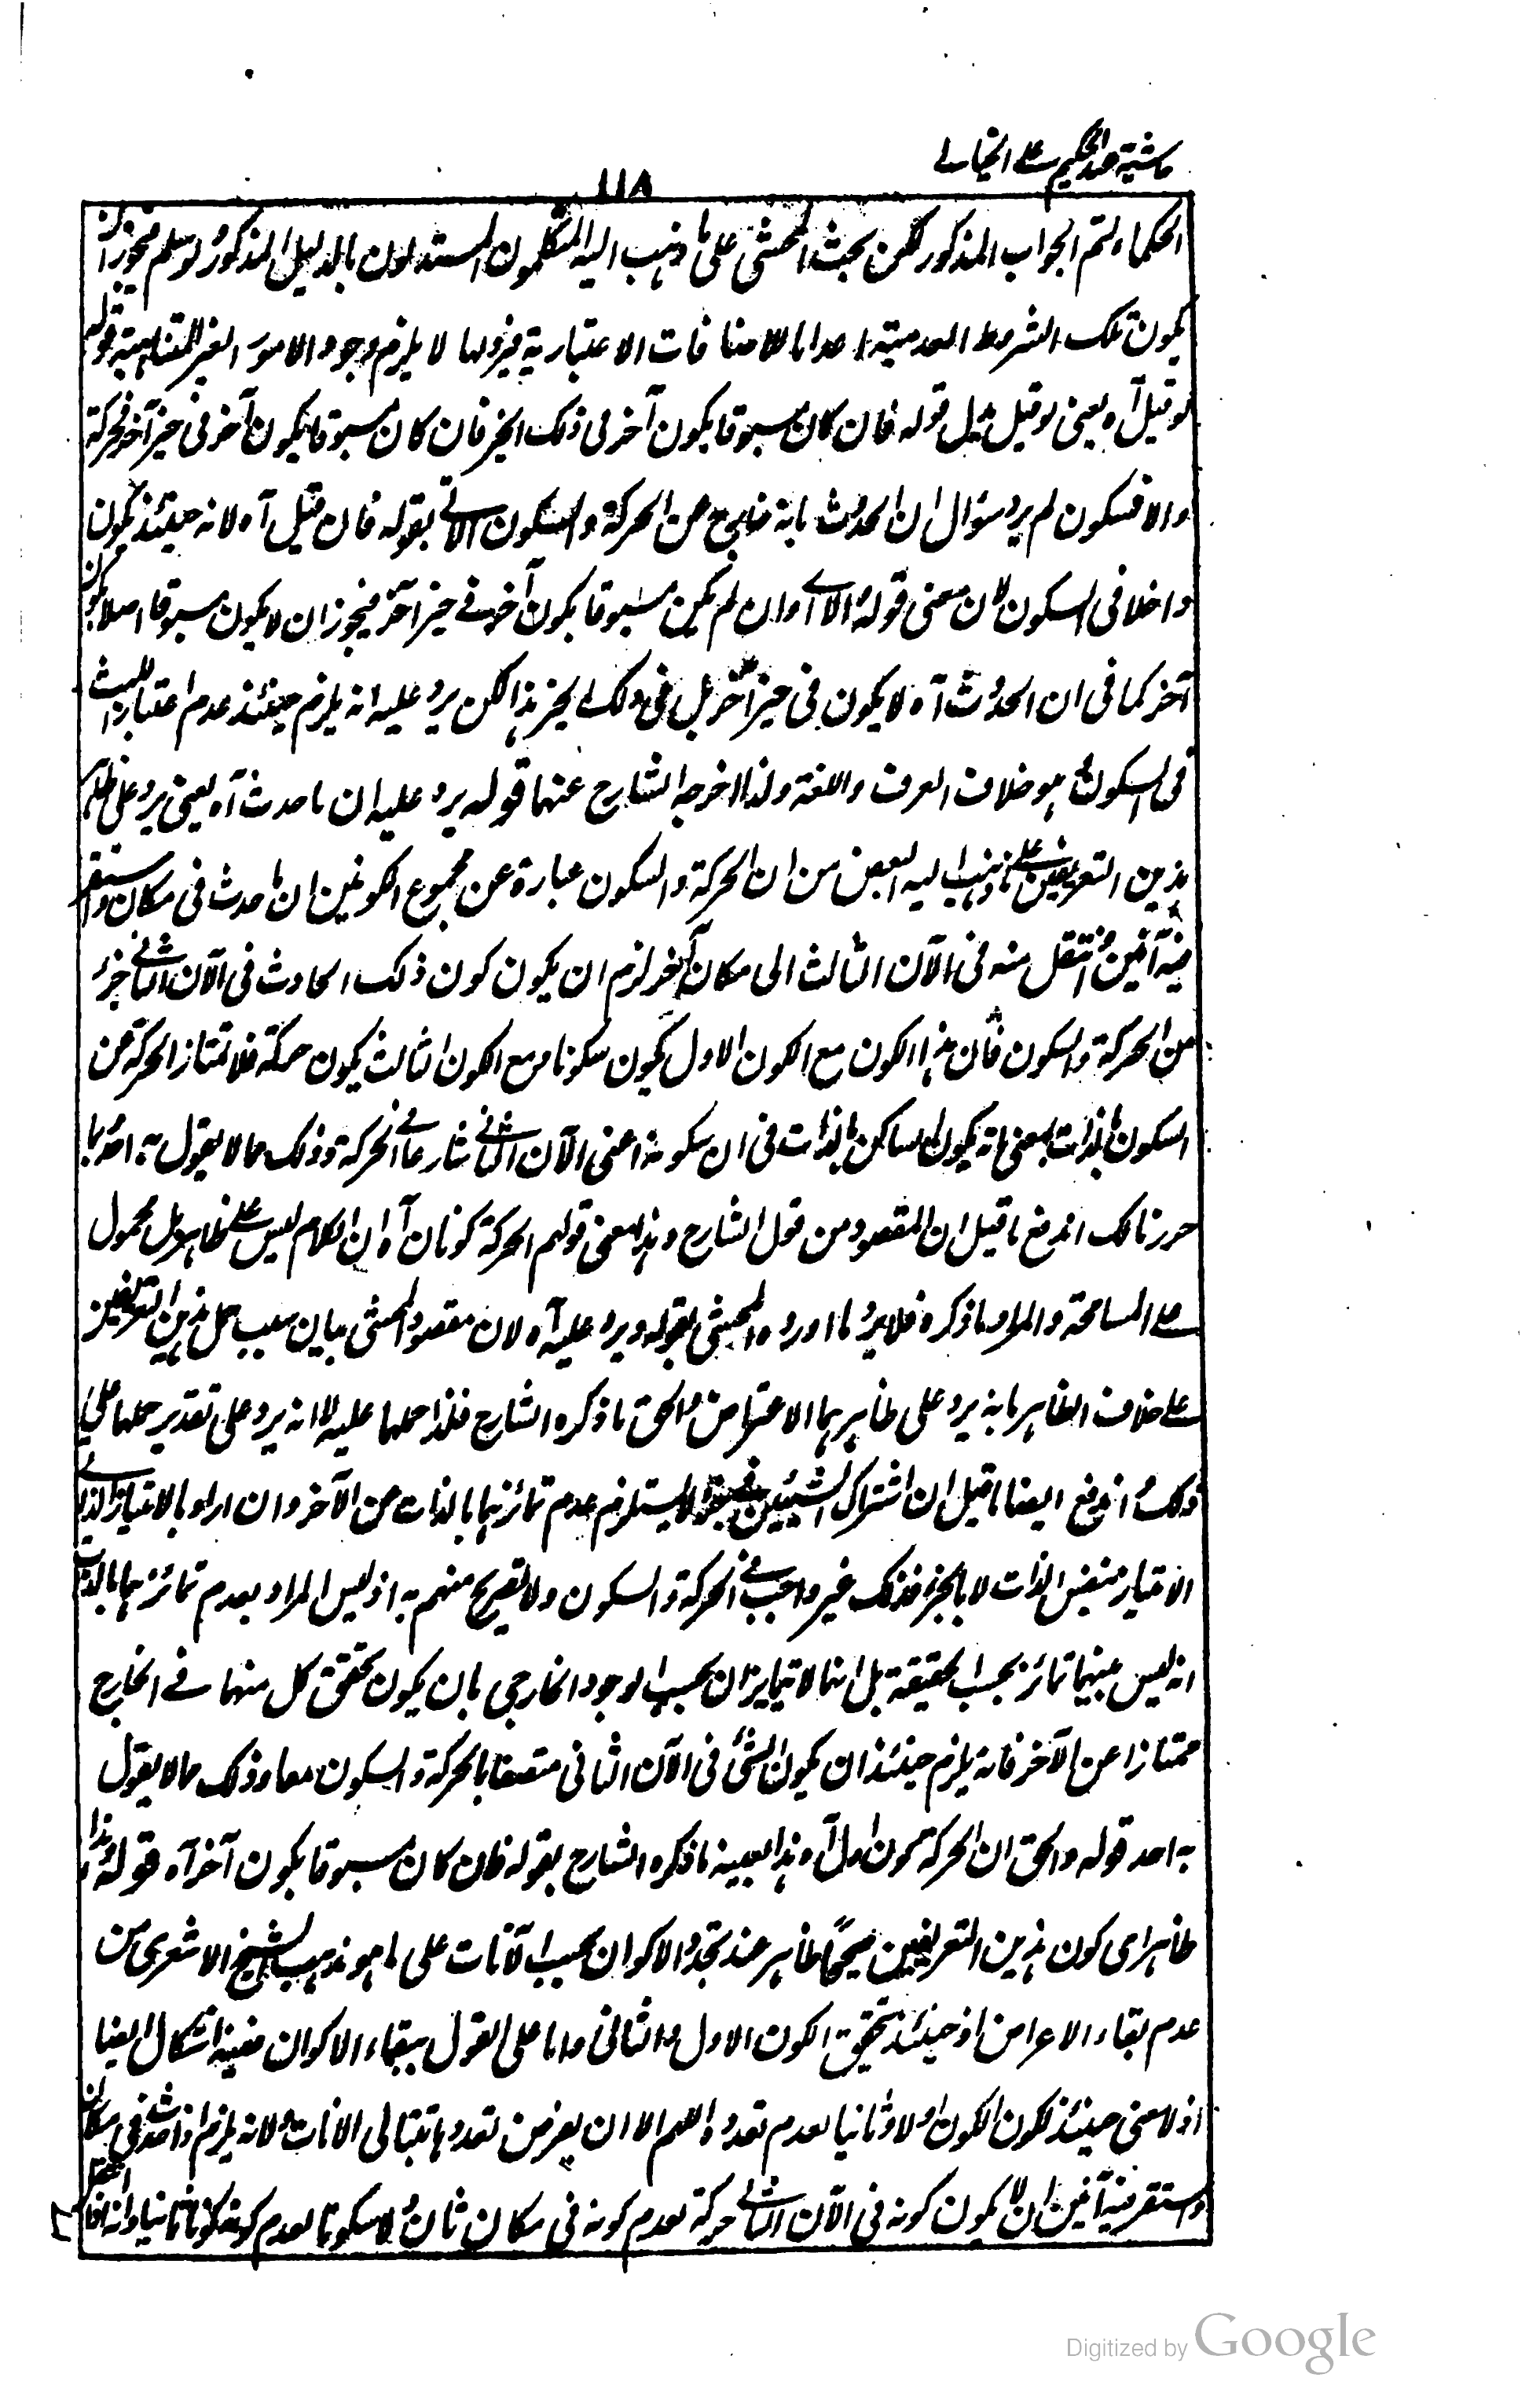 حاشية عبد الحكيم على الخيالى
١١٨
الحكماء لتم الجواب المذكور لكن بحث المحشى على ما ذهب اليه المتكلمون المستدلون بالدليل المذكور لو سلم فيجوز ان
يكون تلك الشروط العدمية اعداما للاضافات الاعتبارية فبزوالها لا يلزم وجود الامور الغير المتناهية قوله
لو قيل آه يعنى لو قيل بدل قوله فان كان مسبوقا بكون آخر فى ذلك الحيز فان كان مسبوقا بكون آخر فى حيز آخر فحركة
والا فسكون لم يرد سؤال ان الحدوث بانه خارج عن الحركة والسكون الآتى بقوله فان قيل آه لانه حينئذ يكون
داخلا فى السكون لان معنى قوله الا اى وان لم يكن مسبوقا بكون آخر فى حيز آخر فيجوز ان لا يكون مسبوقا اصلا بكون
آخر كما فى ان الحدوث آه لا يكون فى حيز آخر بل فى ذلك الحيز هذا لكن يرد عليه انه يلزم حينئذ عدم اعتبار اللبث
فى السكون وهو خلاف العرف واللغة ولذا اخرجه الشارح عنهما قوله يرد عليه ان ما حدث آه يعنى يرد على ظاهر
هذين التعريفين على ما ذهب اليه البعض من ان الحركة والسكون عبارة عن مجموع الكونين ان ما حدث فى مكان واستقر
فيه آنين وانتقل منه فى الآن الثالث الى مكان آخر لزم ان يكون كون ذلك الحادث فى الآن الثانى جزء
من الحركة والسكون فان هذا الكون مع الكون الاول يكون سكونا ومع الكون الثالث يكون حركة فلا تمتاز الحركة عن
السكون بالذات بمعنى انه يكون الساكن بالذات فى ان سكونه اعنى الآن الثانى شارعا فى الحركة وذلك مما لا يقول به احد بما
حررنا لك اندفع ما قيل ان المقصود من قول الشارح وهذا معنى قولهم الحركة كونان آه ان الكلام ليس على ظاهره بل محمول
على المسامحة والمراد ما ذكره فلا يرد ما اورده المحشى بقوله ويرد عليه آه لان مقصود المحشى بيان سبب حمل هذين التعريفين
على خلاف الظاهر بانه يرد على ظاهرهما الاعتراض والحق ما ذكره الشارح فلذا حملها عليه لا انه يرد على تقدير حملها على
ذلك واندفع ايضا ما قيل ان اشتراك الشيئين فى جزء لا يستلزم عدم تمائزهما بالذات عن الآخر وان ارادوا بالامتياز بالذات
الامتياز بنفس الذات لا بالجزء فذلك غير واجب فى الحركة والسكون ولا تصريح منهم به اذ ليس المراد بعدم تمائزهما بالذات
انه ليس بينهما تمائز بحسب الحقيقة بل انهما لا يتمايزان بحسب الوجود الخارجى بان يكون تحقق كل منهما فى الخارج
ممتازا عن الآخر فانه يلزم حينئذ ان يكون الشئ فى الآن الثانى متصفا بالحركة والسكون معا وذلك مما لا يقول
به احد قوله والحق ان الحركة كون اول آه هذا بعينه ما ذكره الشارح بقوله فان كان مسبوقا بكون آخر آه قوله وهذا
ظاهر اى كون هذين التعريفين صحيحًا ظاهر عند تجدد الاكوان بحسب الآنات على ما هو مذهب الشيخ الاشعرى من
عدم بقاء الاعراض اذ حينئذ تحقق الكون الاول والثانى واما على القول ببقاء الاكوان ففيه اشكال ايضا
اذ لا معنى حينئذ لكون الكون اولا وثانيا لعدم تعدده اللهم الا ان يفرض تعددها بتتالى الانات ولانه يلزم اذا حدث فى مكان
واستقر فيه آنين ان لا يكون كونه فى الآن الثانى حركة لعدم كونه فى مكان ثان ولا سكونا لعدم كونه كونا ثانيا وانه اذا انتقل